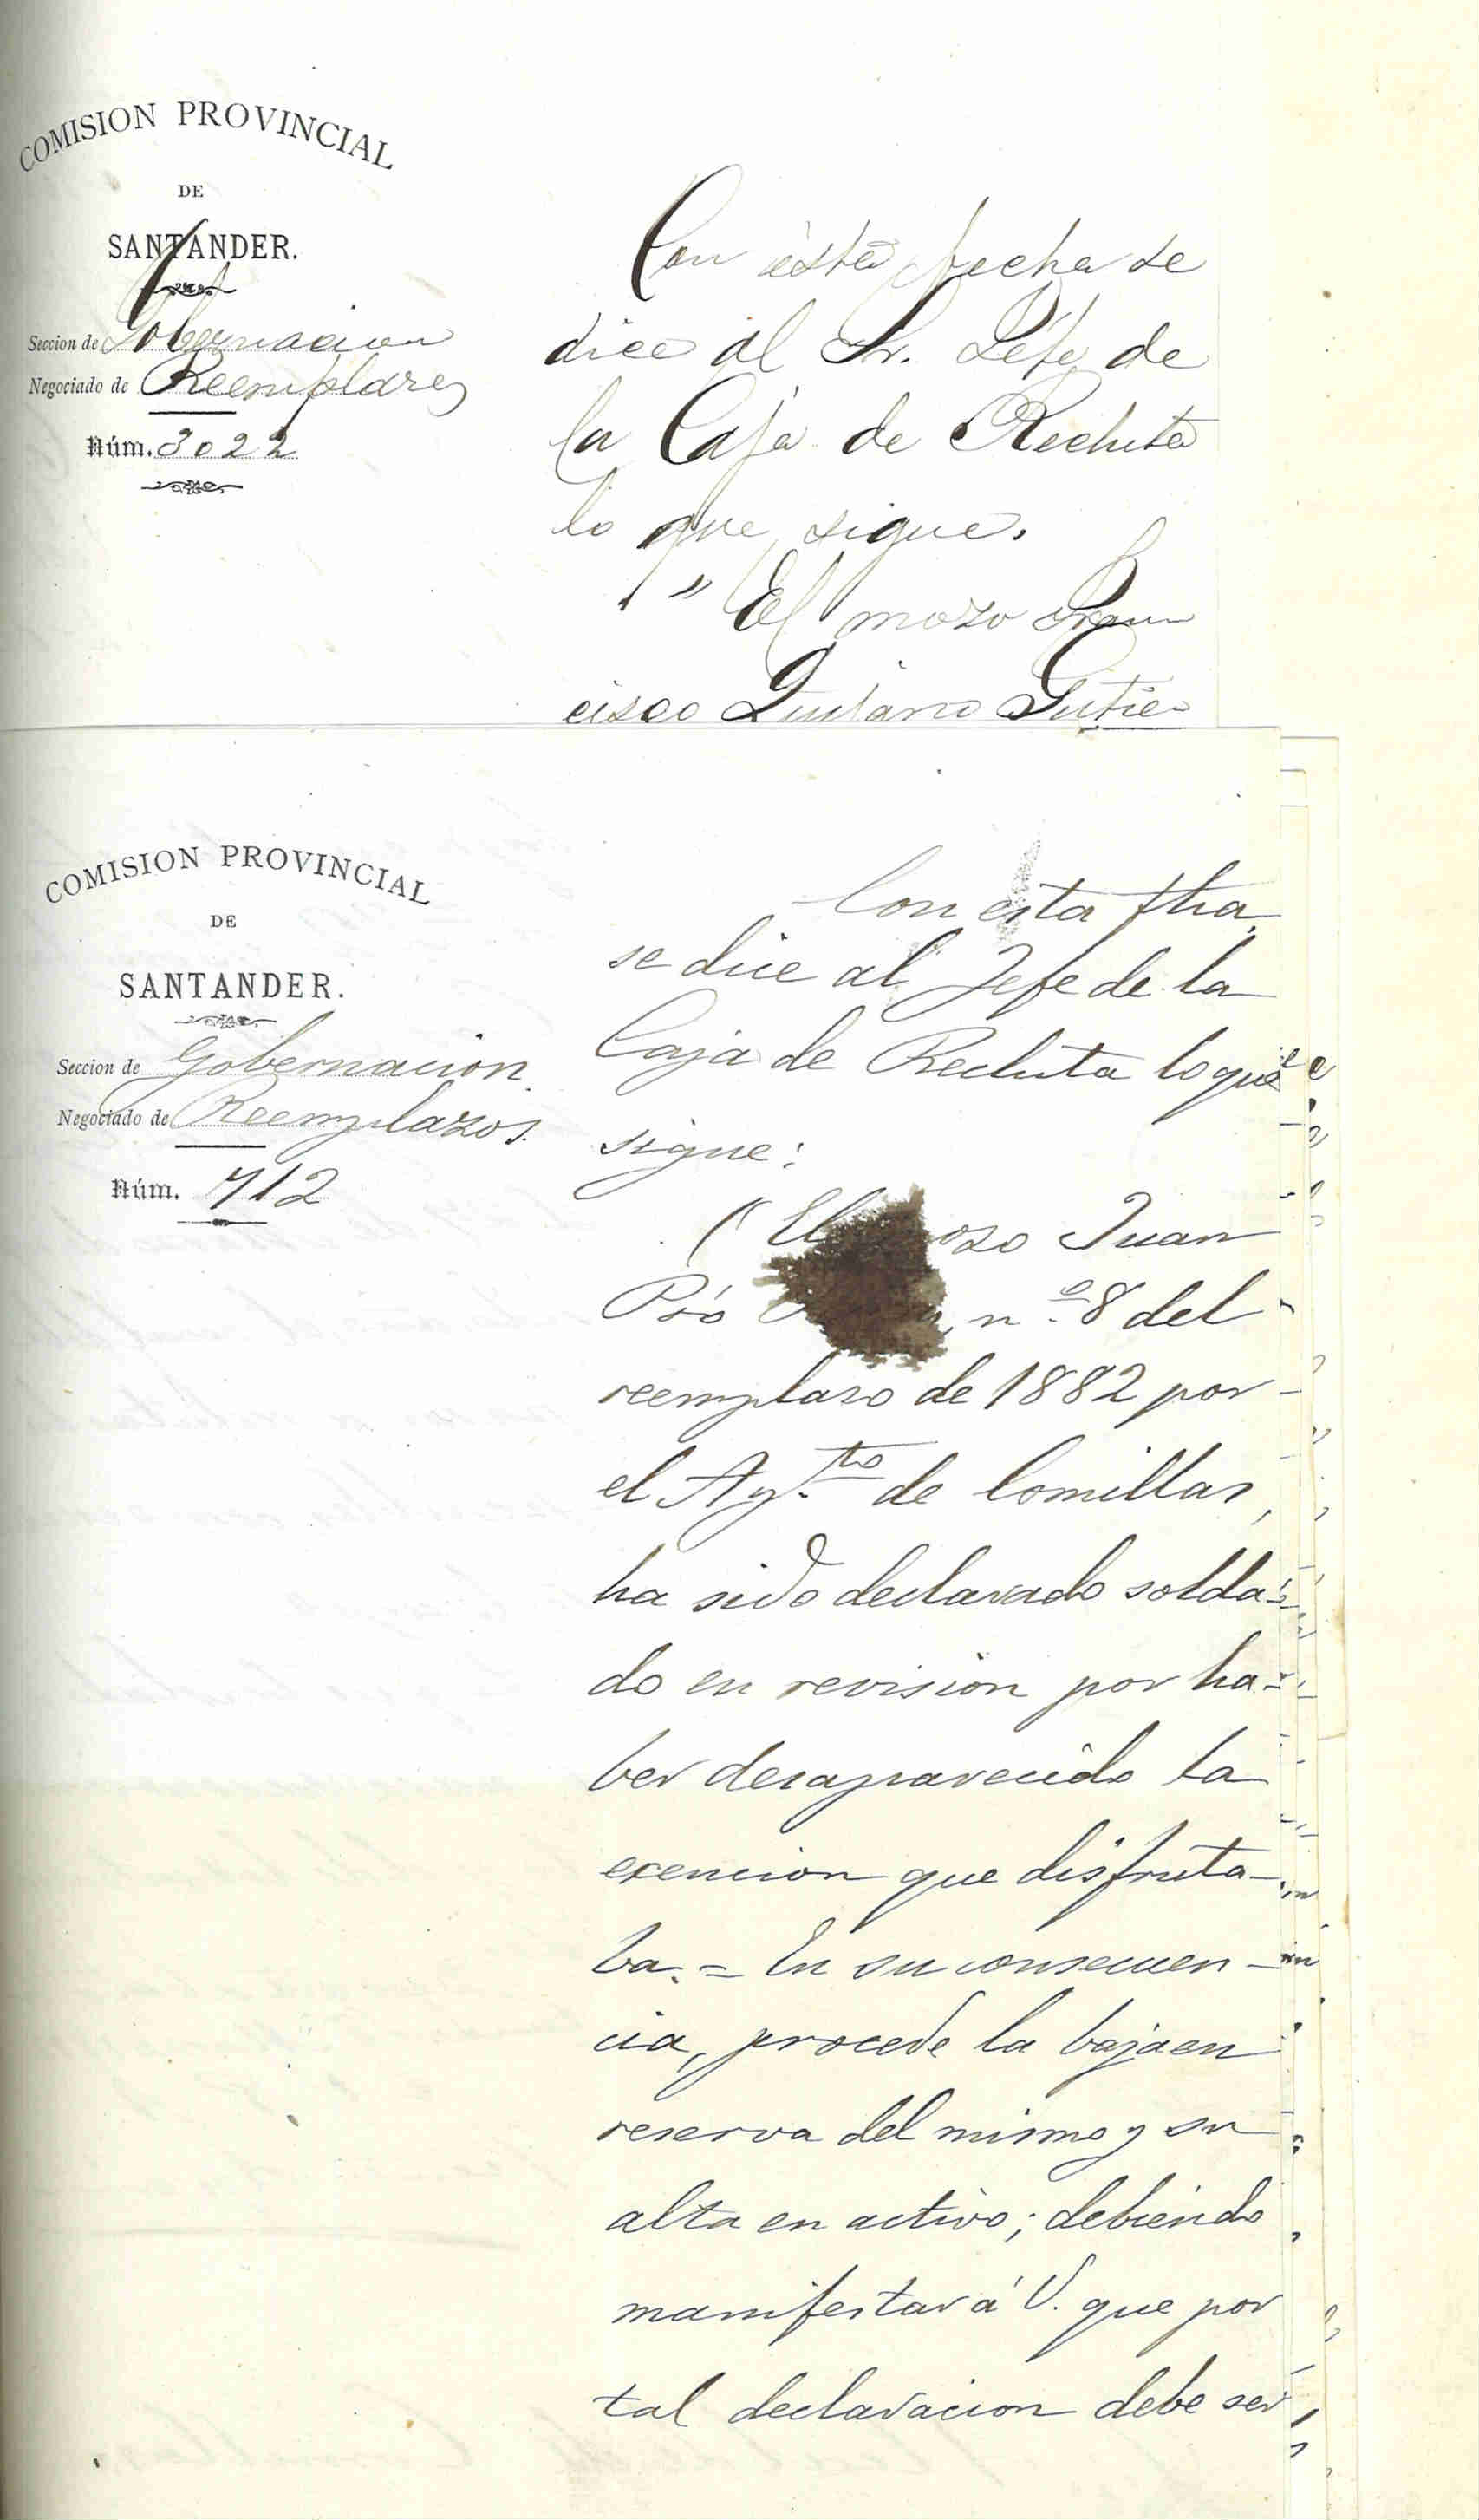 COMISION PROVINCIAL
DE
SANTANDER.
Seccion de Gobernacion
Negociado de Reemplazos
Núm. 3022
Con ésta fecha se
dice al Sr. Jefe de
la Caja de Recluta
lo que sigue.
" El mozo Fran
cisco Quijano Gutie-
COMISION PROVINCIAL
DE
SANTANDER.
Seccion de Gobernacion
Negociado de Reemplazos.
Núm. 712
Con esta fha
se dice al Jefe de la
Caja de Recluta lo que
sigue:
" El mozo Juan
Pró n.º 8 del
reemplazo de 1882 por
el Ay.to de Comillas,
ha sido declarado solda-
do en revision por ha-
ber desaparecido la
exencion que disfruta-
ba. = En su consecuen-
cia, procede la baja en
reserva del mismo y su
alta en activo; debiendo
manifestar á V. que por
tal declaracion debe ser